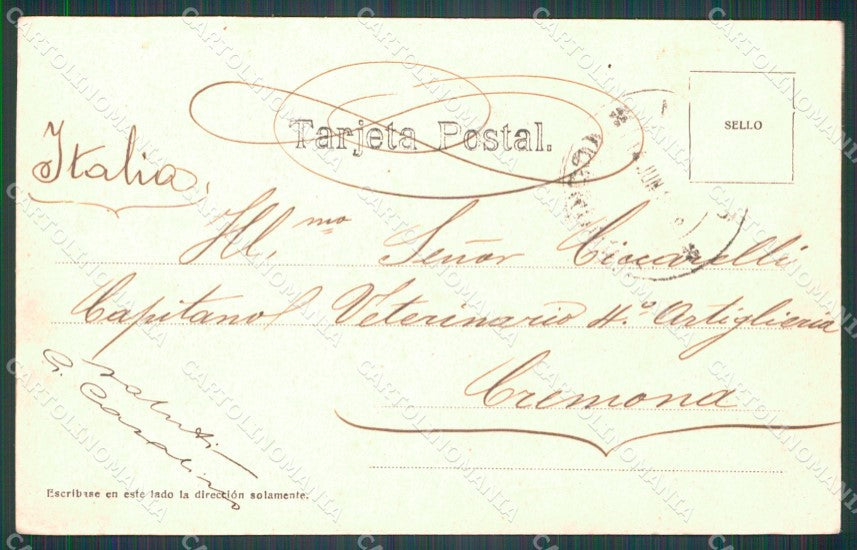 Tarjeta Postal.
SELLO
JUN
Italia,
Ill.mo Señor Ciccarelli
Capitano Veterinario 4.º Artiglieria
Cremona
saluti
G. Casalino
Escribase en este lado la dirección solamente.
CARTOLINOMANIA